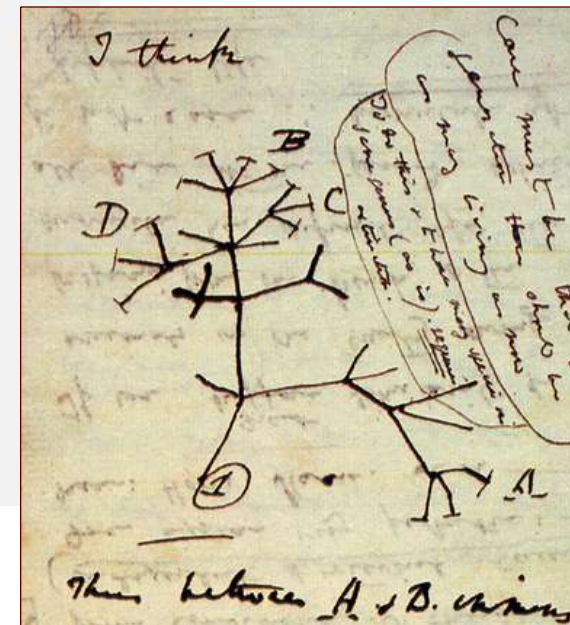 I think
B
C
D
A
1
Case must be that
generation then should be
as many living as now
To do this & to have many species in
same genus (as is). requires
extinction.
Thus between A & B. immens